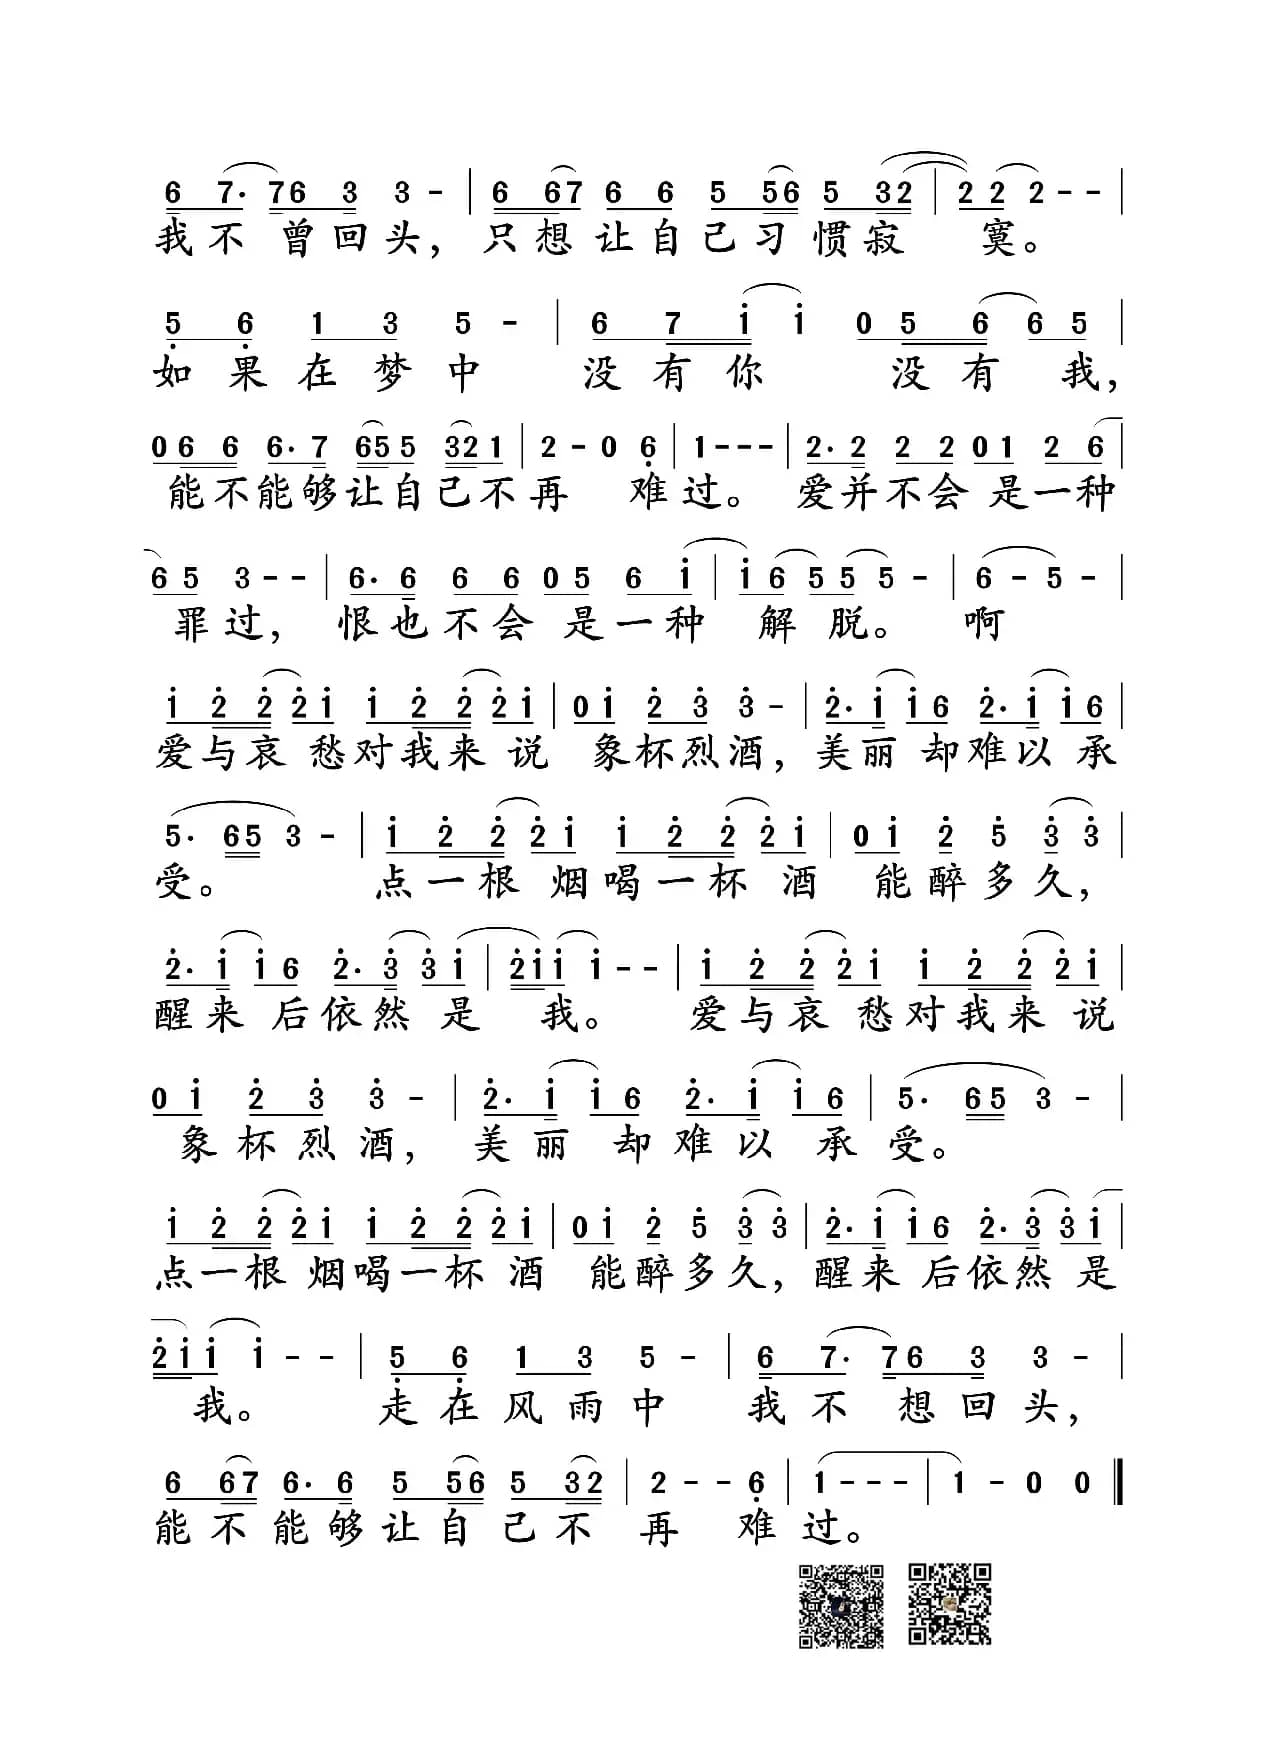 6 7· 7 6 3 3 - | 6 6 7 6 6 5 5 6 5 3 2 | 2 2 2 - - |
我不 曾回头，只想让自己习惯寂 寞。
5 6 1 3 5 - | 6 7 1 1 0 5 6 6 5 |
如果在梦中 没有你 没有我，
0 6 6 6· 7 6 5 5 3 2 1 | 2 - 0 6 | 1 - - - | 2· 2 2 2 0 1 2 6 |
能不能够让自己不再 难过。 爱并不会是一种
6 5 3 - - | 6· 6 6 6 0 5 6 1 | 1 6 5 5 5 - | 6 - 5 - |
罪过， 恨也不会是一种 解脱。 啊
1 2 2 2 1 1 2 2 2 1 | 0 1 2 3 3 - | 2· 1 1 6 2· 1 1 6 |
爱与哀 愁对我来 说 象杯烈酒，美丽 却难以 承
5· 6 5 3 - | 1 2 2 2 1 1 2 2 2 1 | 0 1 2 5 3 3 |
受。 点一根 烟喝一杯 酒 能醉多久，
2· 1 1 6 2· 3 3 1 | 2 1 1 1 - - | 1 2 2 2 1 1 2 2 2 1 |
醒来 后依然 是 我。 爱与哀 愁对我来 说
0 1 2 3 3 - | 2· 1 1 6 2· 1 1 6 | 5· 6 5 3 - |
象杯烈酒， 美丽 却难以 承受。
1 2 2 2 1 1 2 2 2 1 | 0 1 2 5 3 3 | 2· 1 1 6 2· 3 3 1 |
点一根 烟喝一杯 酒 能醉多久，醒来 后依然 是
2 1 1 1 - - | 5 6 1 3 5 - | 6 7· 7 6 3 3 - |
我。 走在风雨中 我不 想回头，
6 6 7 6· 6 5 5 6 5 3 2 | 2 - - 6 | 1 - - - | 1 - 0 0 ‖
能不能够让自己不 再 难过。